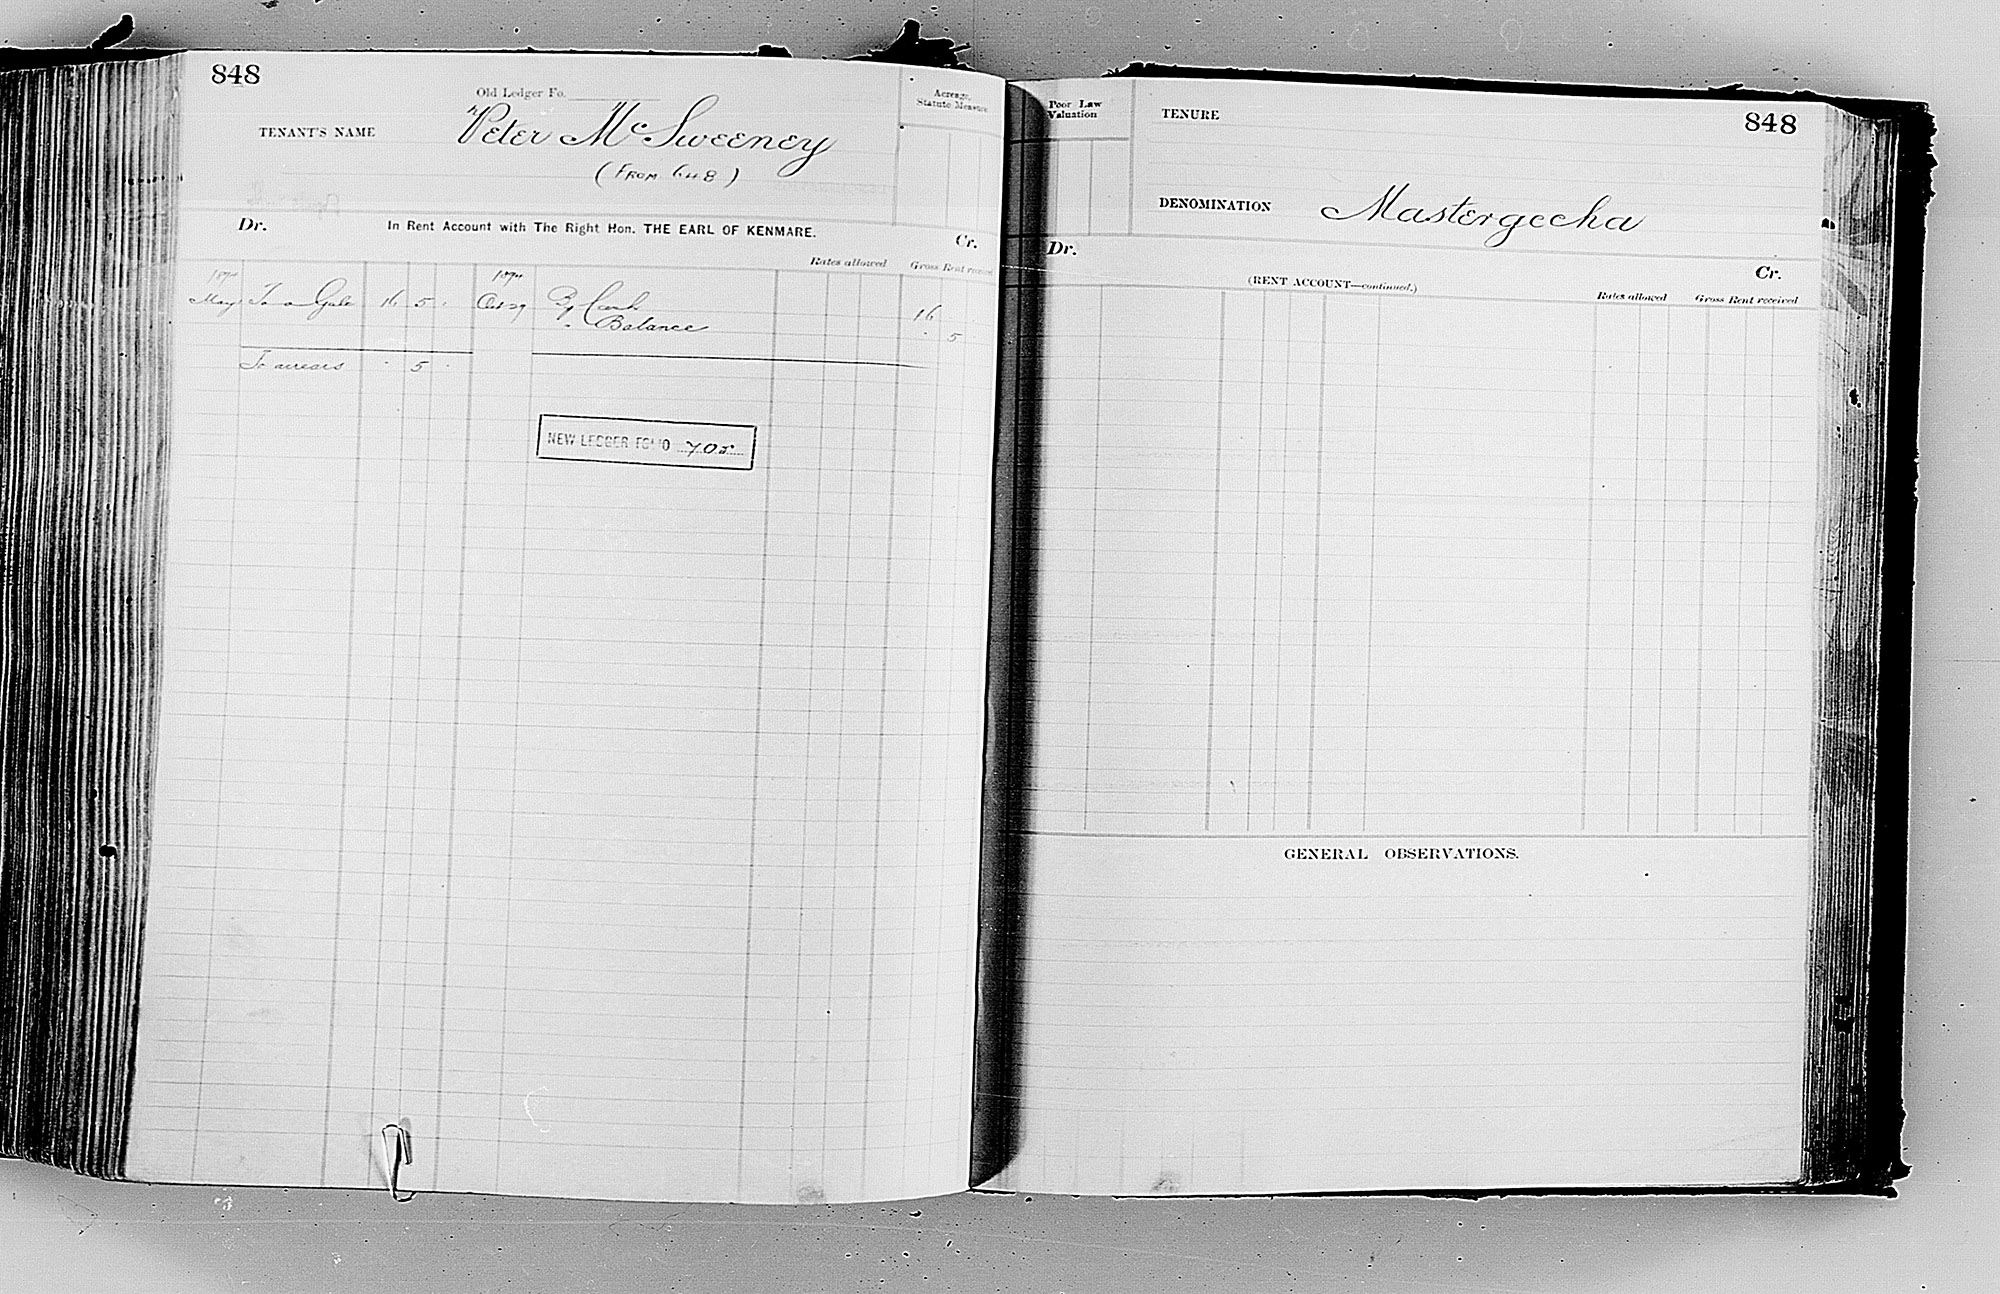 848
Old Ledger Fo.
Acreage,
Statute Measure
TENANT'S NAME Peter McSweeney
(FROM 648)
Dr. In Rent Account with The Right Hon. THE EARL OF KENMARE. Cr.
Rates allowed Gross Rent received
May To a Gale 16 5 . Oct 29 By Cash 16
" Balance . 5
To arrears . 5 .
NEW LEDGER FOLIO 705
Poor Law
Valuation
TENURE 848
DENOMINATION Mastergeeha
Dr. Cr.
(RENT ACCOUNT—continued.)
Rates allowed Gross Rent received
GENERAL OBSERVATIONS.